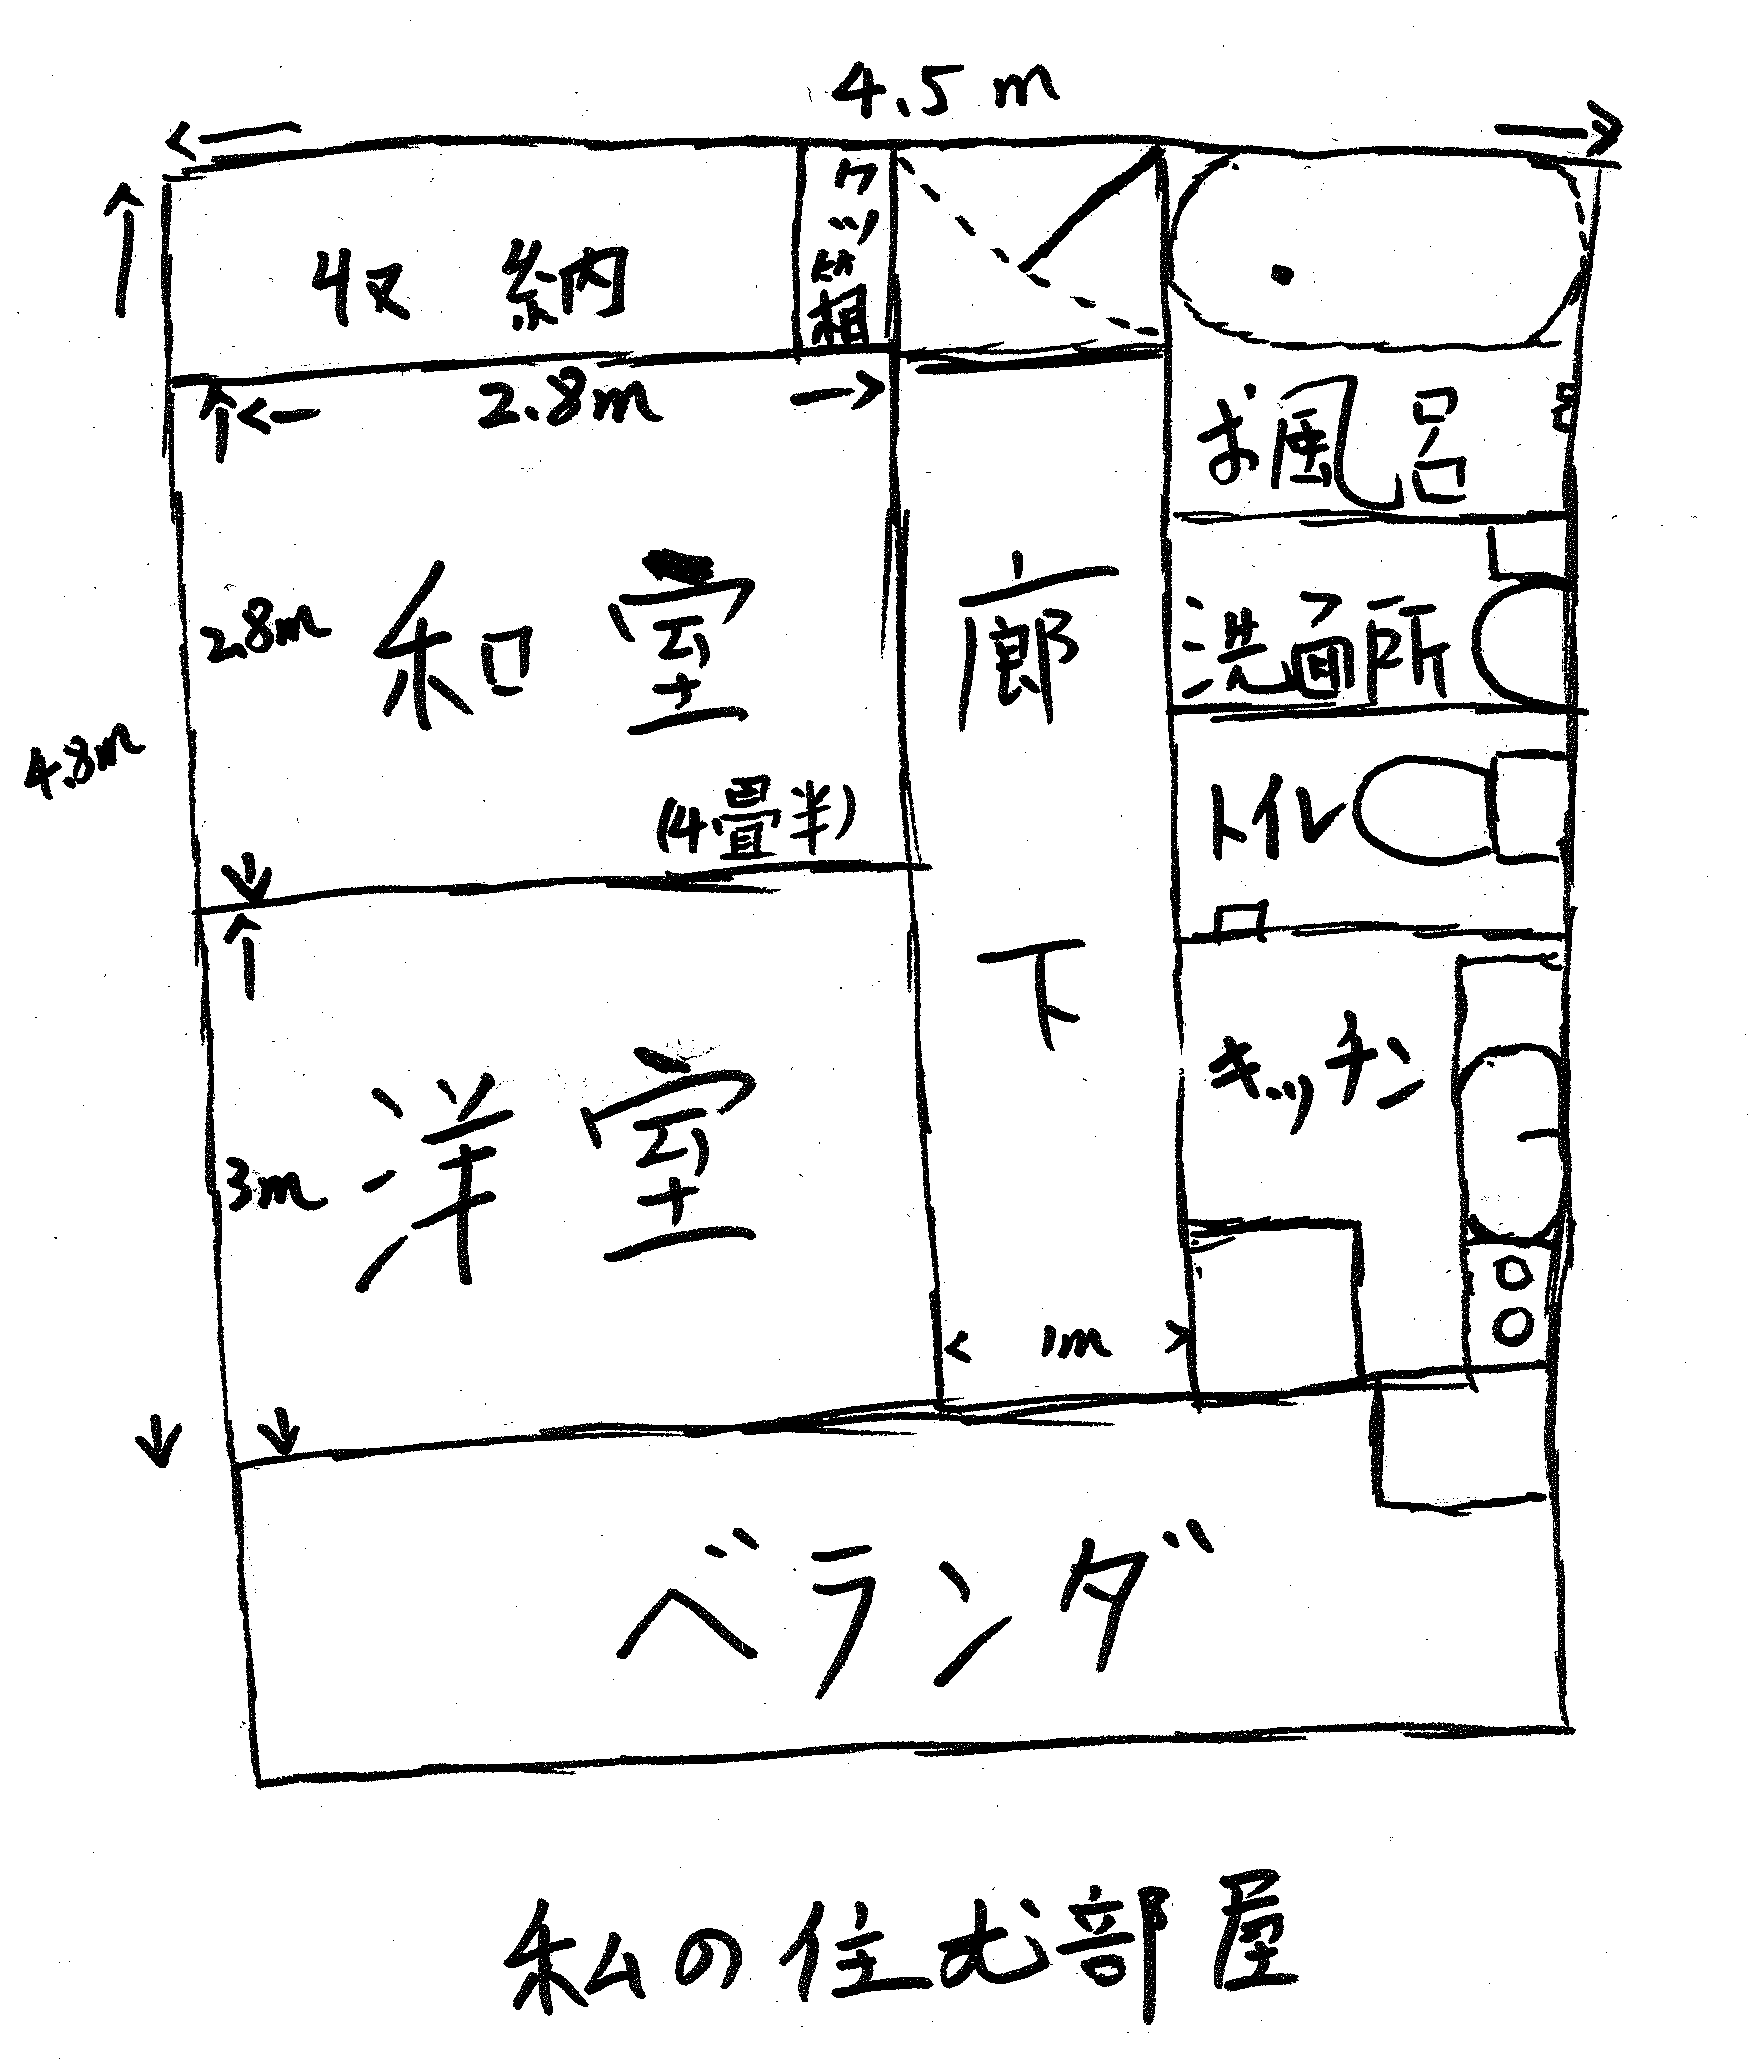 4.5m
収納
クツ箱
2.8m
お風呂
2.8m
和室
廊下
洗面所
4.8m
(4畳半)
トイレ
キッチン
3m
洋室
1m
ベランダ
私の住む部屋